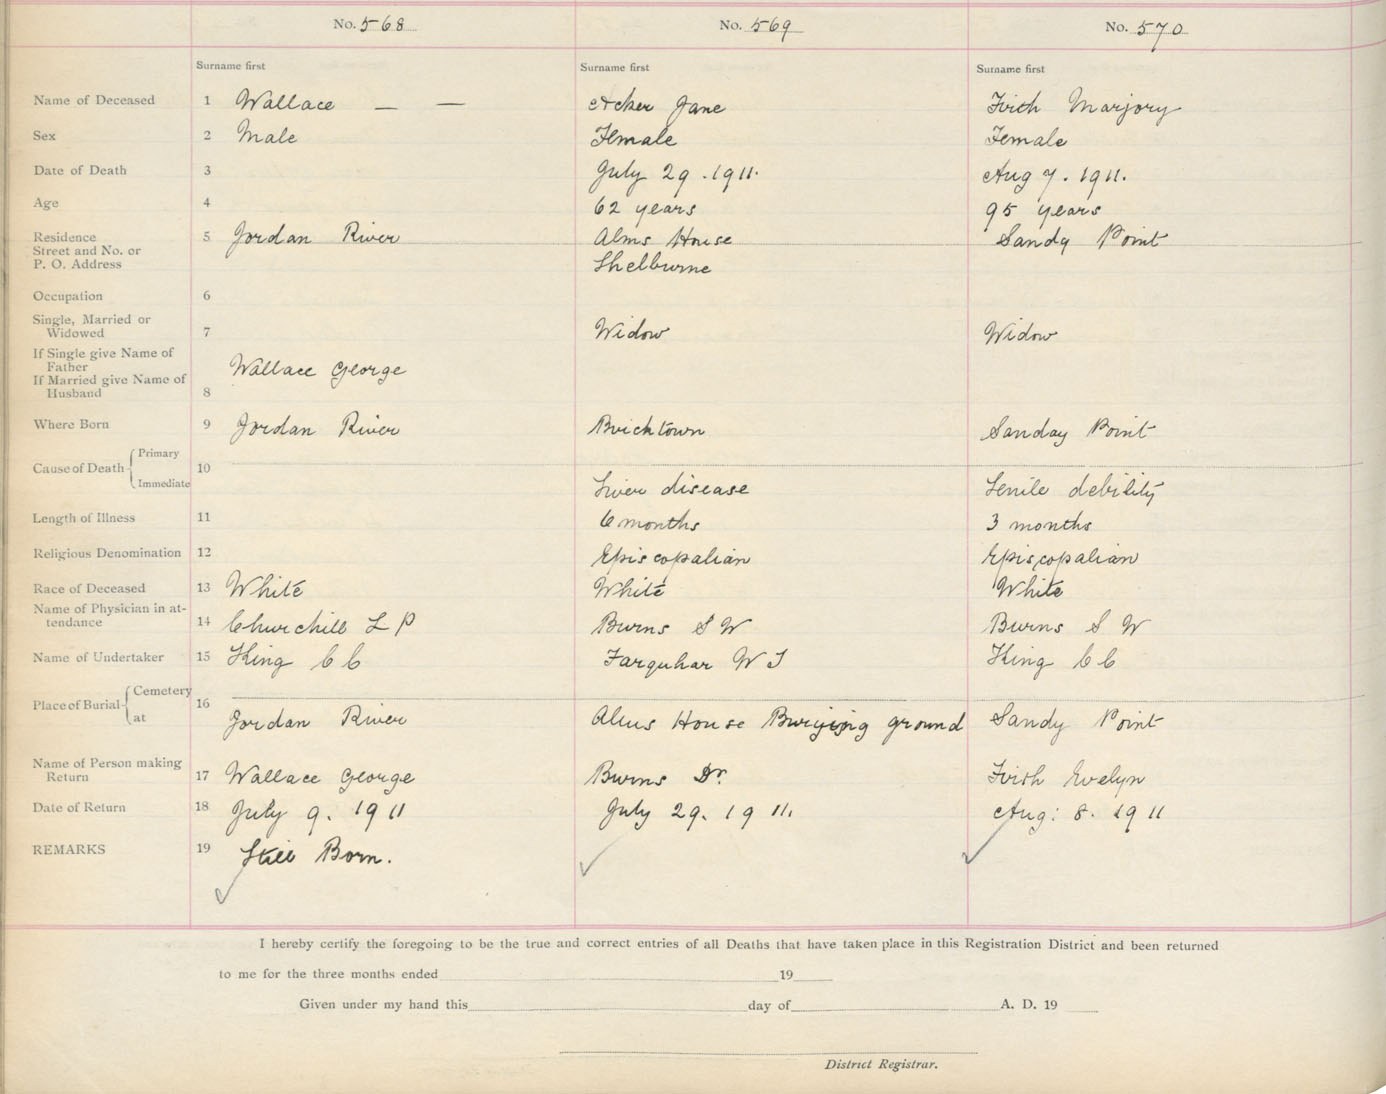 No. 568 No. 569 No. 570
Surname first Surname first Surname first
Name of Deceased 1 Wallace — — Acker Jane Frith Marjory
Sex 2 Male Female Female
Date of Death 3 July 29. 1911. Aug 7. 1911.
Age 4 62 years 95 years
Residence 5 Jordan River Alms House Sandy Point
Street and No. or
P. O. Address Shelburne
Occupation 6
Single, Married or
Widowed 7 Widow Widow
If Single give Name of
Father Wallace George
If Married give Name of
Husband 8
Where Born 9 Jordan River Bricktown Sanday Point
Primary
Cause of Death 10
Immediate Liver disease Senile debility
Length of Illness 11 6 months 3 months
Religious Denomination 12 Episcopalian Episcopalian
Race of Deceased 13 White White White
Name of Physician in at-
tendance 14 Churchill L P Burns S W Burns S W
Name of Undertaker 15 King C C Farquhar W J King C C
Cemetery
Place of Burial 16
at Jordan River Alms House Burying ground Sandy Point
Name of Person making
Return 17 Wallace George Burns Dr. Frith Evelyn
Date of Return 18 July 9. 1911 July 29. 1911. Aug: 8. 1911
REMARKS 19 Still Born.
I hereby certify the foregoing to be the true and correct entries of all Deaths that have taken place in this Registration District and been returned
to me for the three months ended 19
Given under my hand this day of A. D. 19
District Registrar.